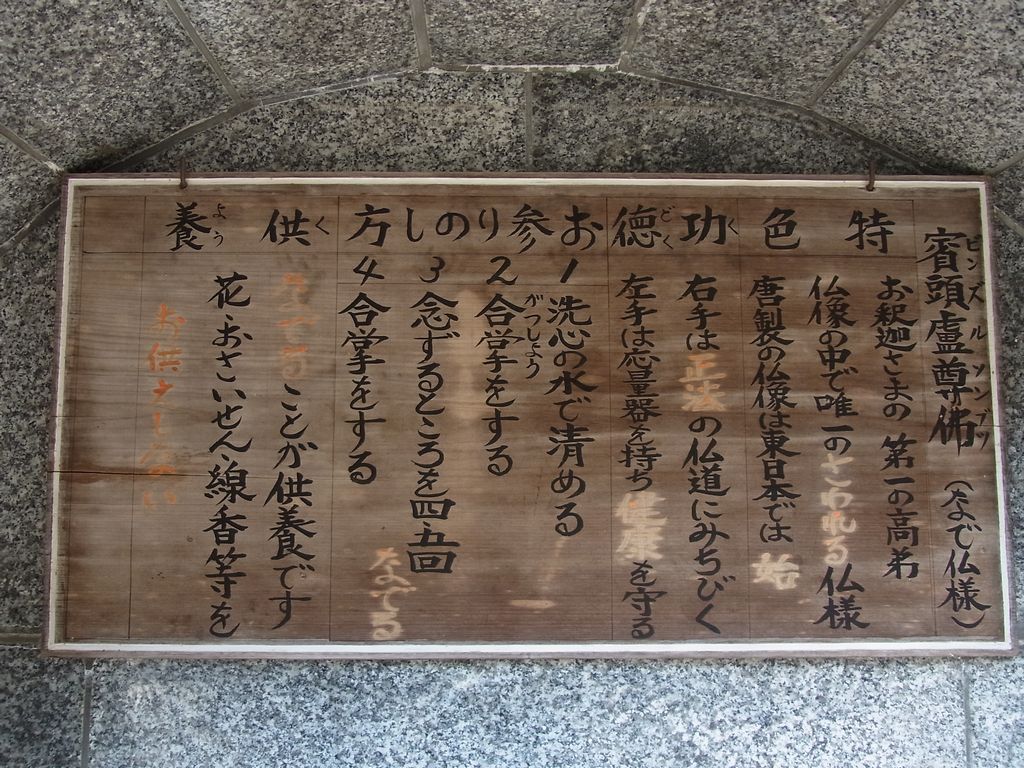 賓頭盧尊佛 (なで仏様)
ビンズルソンブツ
特色
お釈迦さまの第一の高弟
仏像の中で唯一のさわれる仏様
唐製の仏像は東日本では 始
功徳
くどく
右手は正法の仏道にみちびく
左手は応量器を持ち健康を守る
お参りのし方
1 洗心の水で清める
2 合掌をする
がっしょう
3 念ずるところを四五回
なでる
4 合掌をする
供養
くよう
ことが供養です
花・おさいせん・線香等を
お供え下さい